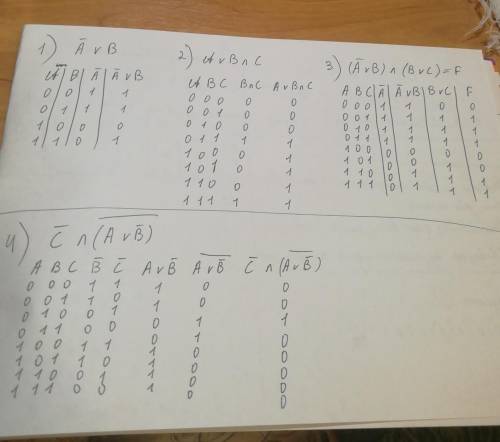 1) Ā v B
A B Ā Ā v B
0 0 1 1
0 1 1 1
1 0 0 0
1 1 0 1
2) A v B ∧ C
A B C B∧C A v B∧C
0 0 0 0 0
0 0 1 0 0
0 1 0 0 0
0 1 1 1 1
1 0 0 0 1
1 0 1 0 1
1 1 0 0 1
1 1 1 1 1
3) (Ā v B) ∧ (B v C) = F
A B C Ā Ā v B B v C F
0 0 0 1 1 0 0
0 0 1 1 1 1 1
0 1 0 1 1 1 1
0 1 1 1 1 1 1
1 0 0 0 0 0 0
1 0 1 0 0 1 0
1 1 0 0 1 1 1
1 1 1 0 1 1 1
4) C̄ ∧ (A v B̄)̅
A B C B̄ C̄ A v B̄ (A v B̄)̅ C̄ ∧ (A v B̄)̅
0 0 0 1 1 1 0 0
0 0 1 1 0 1 0 0
0 1 0 0 1 0 1 1
0 1 1 0 0 0 1 0
1 0 0 1 1 1 0 0
1 0 1 1 0 1 0 0
1 1 0 0 1 1 0 0
1 1 1 0 0 1 0 0